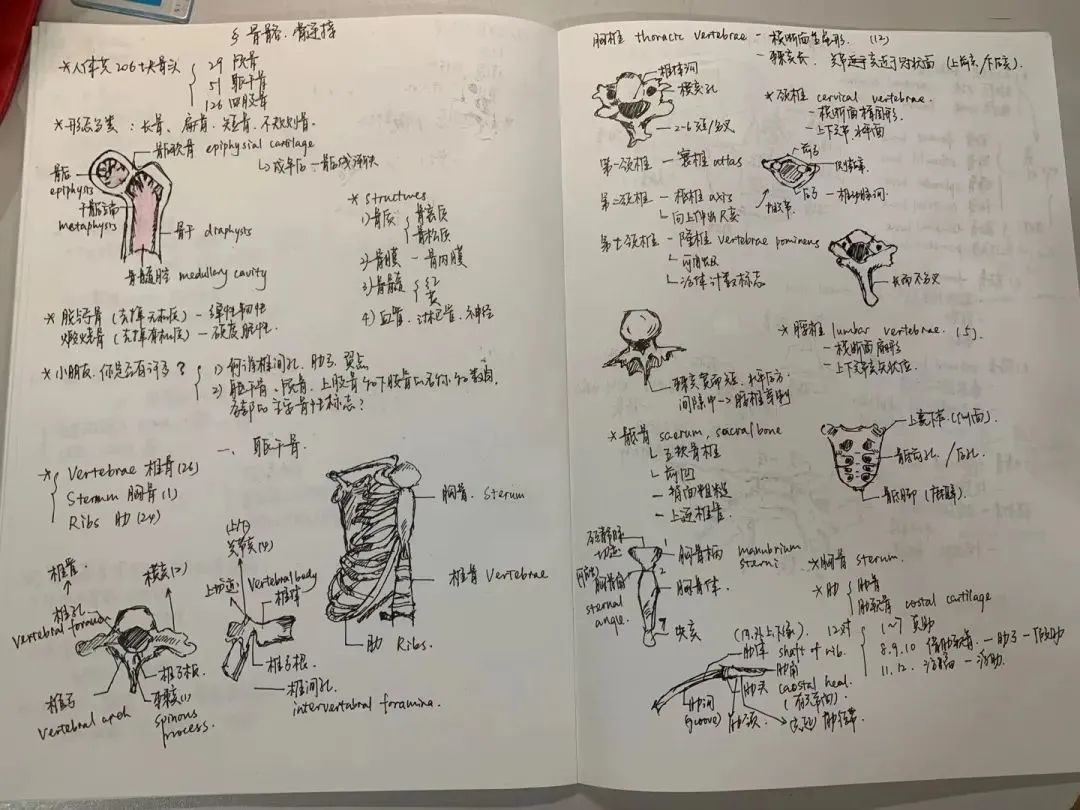 § 骨骼、骨连接
*人体共206块骨头
29 颅骨
51 躯干骨
126 四肢骨
*形态分类：长骨、扁骨、短骨、不规则骨.
骺软骨 epiphysial cartilage
成年后 - 骺线
骨骺
epiphysis
干骺端
metaphysis
骨干 diaphysis
骨髓腔 medullary cavity
* structures
1) 骨质
骨密质
骨松质
2) 骨膜 - 骨内膜
3) 骨髓
红
黄
4) 血管、淋巴管、神经
* 脱钙骨 (去掉无机质) - 弹性韧性
煅烧骨 (去掉有机质) - 硬度脆性.
*小朋友，你是否有许多？
1) 何谓椎间孔、肋弓、翼点
2) 躯干骨、颅骨、上肢骨和下肢骨的名称和数目，
各部的主要骨性标志？
一、躯干骨.
*
Vertebrae 椎骨(26)
Sternum 胸骨(1)
Ribs 肋(24)
胸骨. Sterum
椎骨 Vertebrae
肋 Ribs.
椎管.
横突(2)
椎孔
vertebral foramen
椎弓
vertebral arch
椎弓板
棘突(1)
spinous
process.
(上/下)
关节突(4)
上切迹
Vertebral body
椎体
椎弓根.
椎间孔.
intervertabral foramina.
胸椎 thoracic vertebrae - 横断面呈心形. (12)
- 棘突长. 关节突关节近于冠状面 (上朝后/下朝前).
椎体
横突孔
2-6短/分叉
*颈椎 cervical vertebrae.
- 横断面椭圆形.
- 上下关节 水平面
第一颈椎 - 寰椎 atlas
前弓
侧块
后弓 - 椎动脉沟
第二颈椎 - 枢椎 axis
向上伸出齿突
第七颈椎 - 隆椎 vertebrae pominens
活体计数标志
长而不分叉
*腰椎 lumbar vertebrae. (5)
- 横断面肾形
- 上下关节突矢状位.
棘突宽而短. 水平后方
间隙中 -> 腰椎穿刺
*骶骨 sacrum, sacral bone
五块骶椎
前凹
- 背面粗糙
- 上连椎管.
骶前孔/后孔.
颈静脉
切迹
胸骨柄 manubrium
sterni
胸骨角
sternal
angle.
胸骨体.
剑突
*胸骨 sternum.
*肋
肋骨
肋软骨 costal cartilage
12对
1~7 真肋
8.9.10 - 肋弓 - 假肋
11.12. - 浮肋.
肋体 shaft of rib.
肋角
肋头 caostal heal.
(有关节面)
肋沟
(groove)
肋颈.
肋结节.